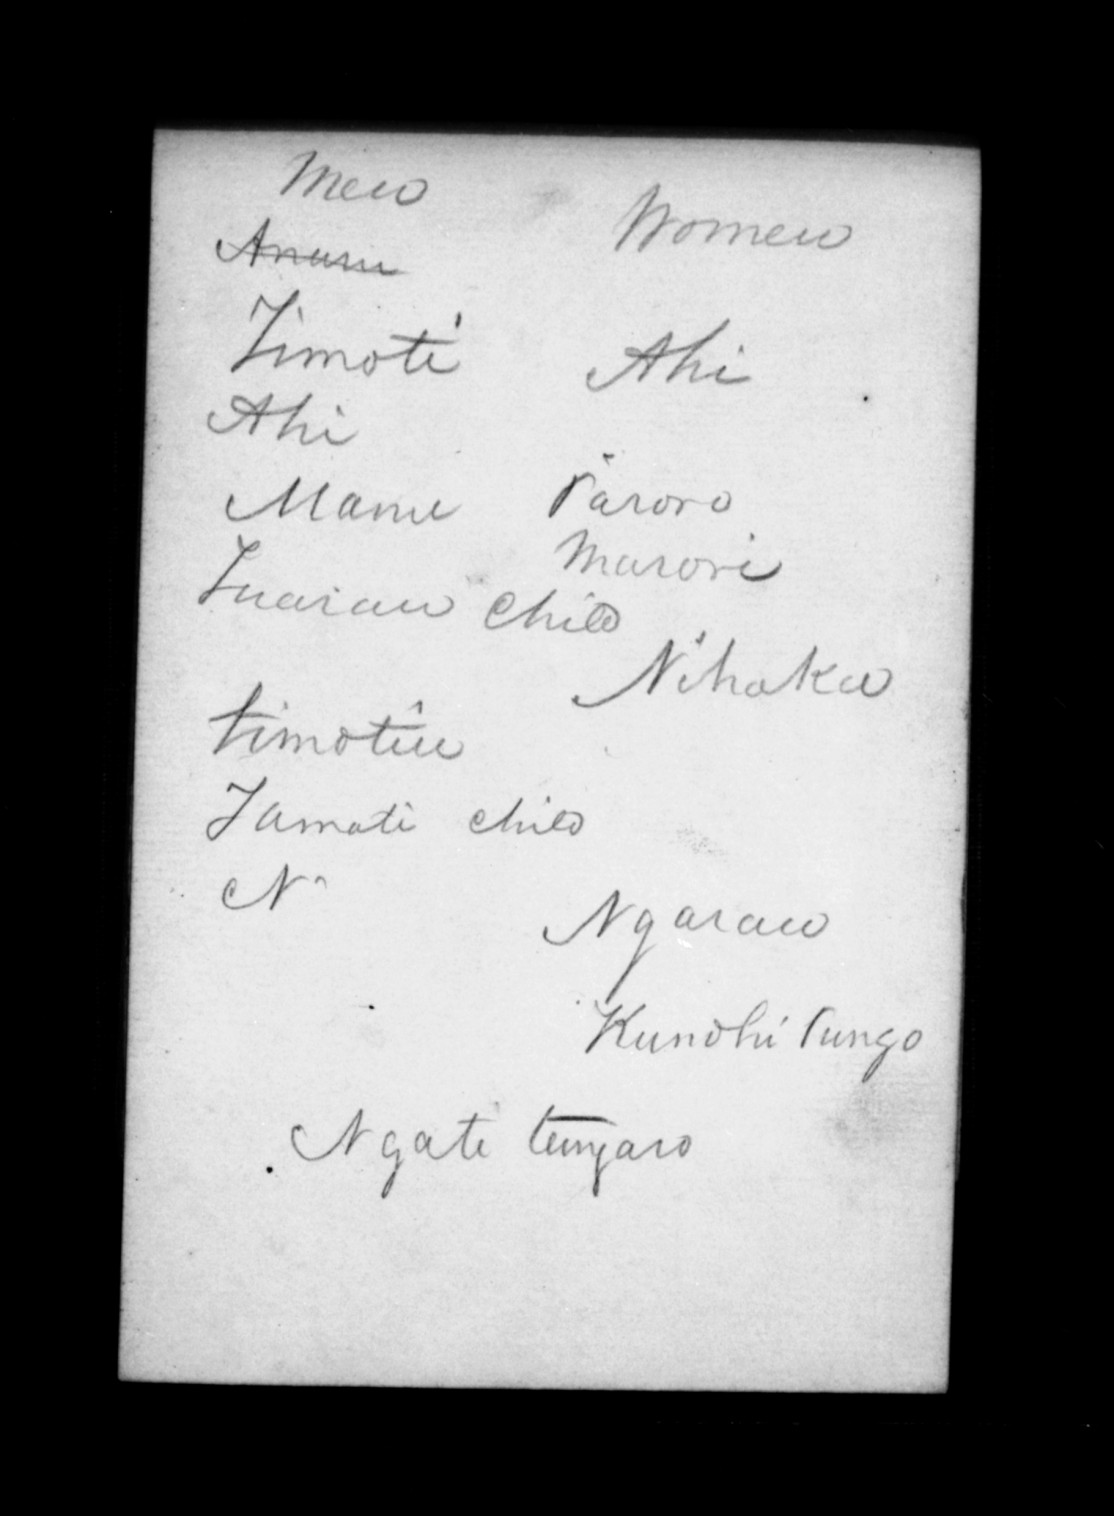 Men
Women
Anaru
Timoti
Ahi
Ahi
Manu
Paroro
Marori
Tuarau Child
Nihaka
timotiu
Tamati child
N
Ngarau
Kunohi rungo
Ngati tungaro